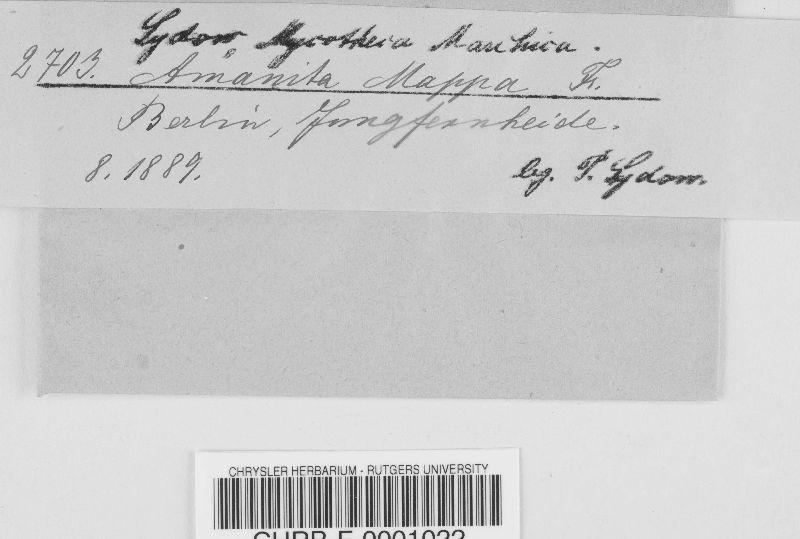 Sydow, Mycotheca Marchica.
2703. Amanita Mappa Fr.
Berlin, Jungfernheide.
8. 1889.
leg. P. Sydow.
CHRYSLER HERBARIUM - RUTGERS UNIVERSITY
CHRB-F-0001022